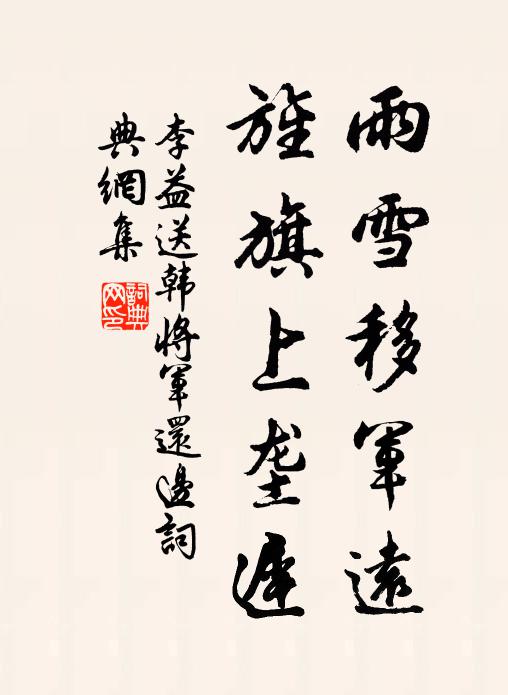 雨雪移軍遠
旌旗上垄遲
李益送韩將軍還邊
詞典網集
詞典网印